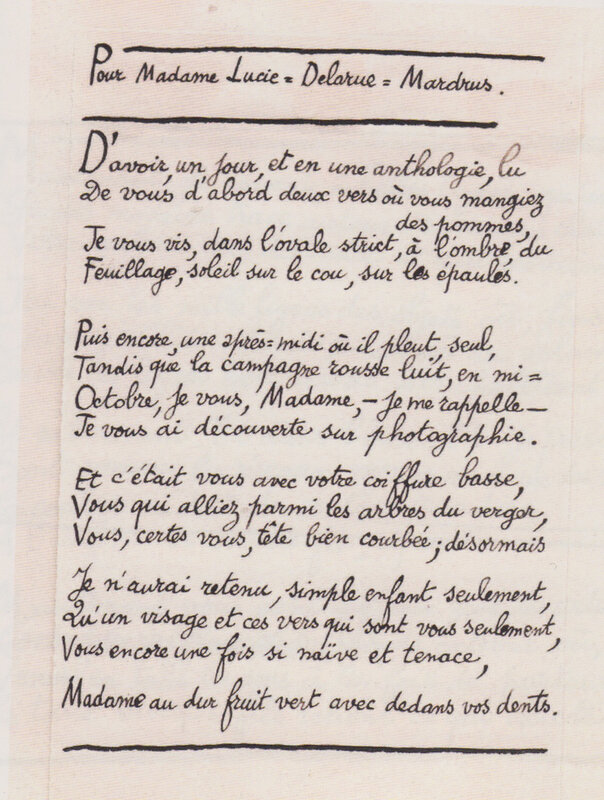 Pour Madame Lucie = Delarue = Mardrus.
D'avoir, un jour, et en une anthologie, lu
De vous d'abord deux vers où vous mangiez
des pommes,
Je vous vis, dans l'ovale strict, à l'ombre, du
Feuillage, soleil sur le cou, sur les épaules.
Puis encore, une après=midi où il pleut, seul,
Tandis que la campagne rousse luit, en mi=
Octobre, je vous, Madame, – je me rappelle –
Je vous ai découverte sur photographie.
Et c'était vous avec votre coiffure basse,
Vous qui alliez parmi les arbres du verger,
Vous, certes vous, tête bien courbée; désormais
Je n'aurai retenu, simple enfant seulement,
Qu'un visage et ces vers qui sont vous seulement,
Vous encore une fois si naïve et tenace,
Madame au dur fruit vert avec dedans vos dents.